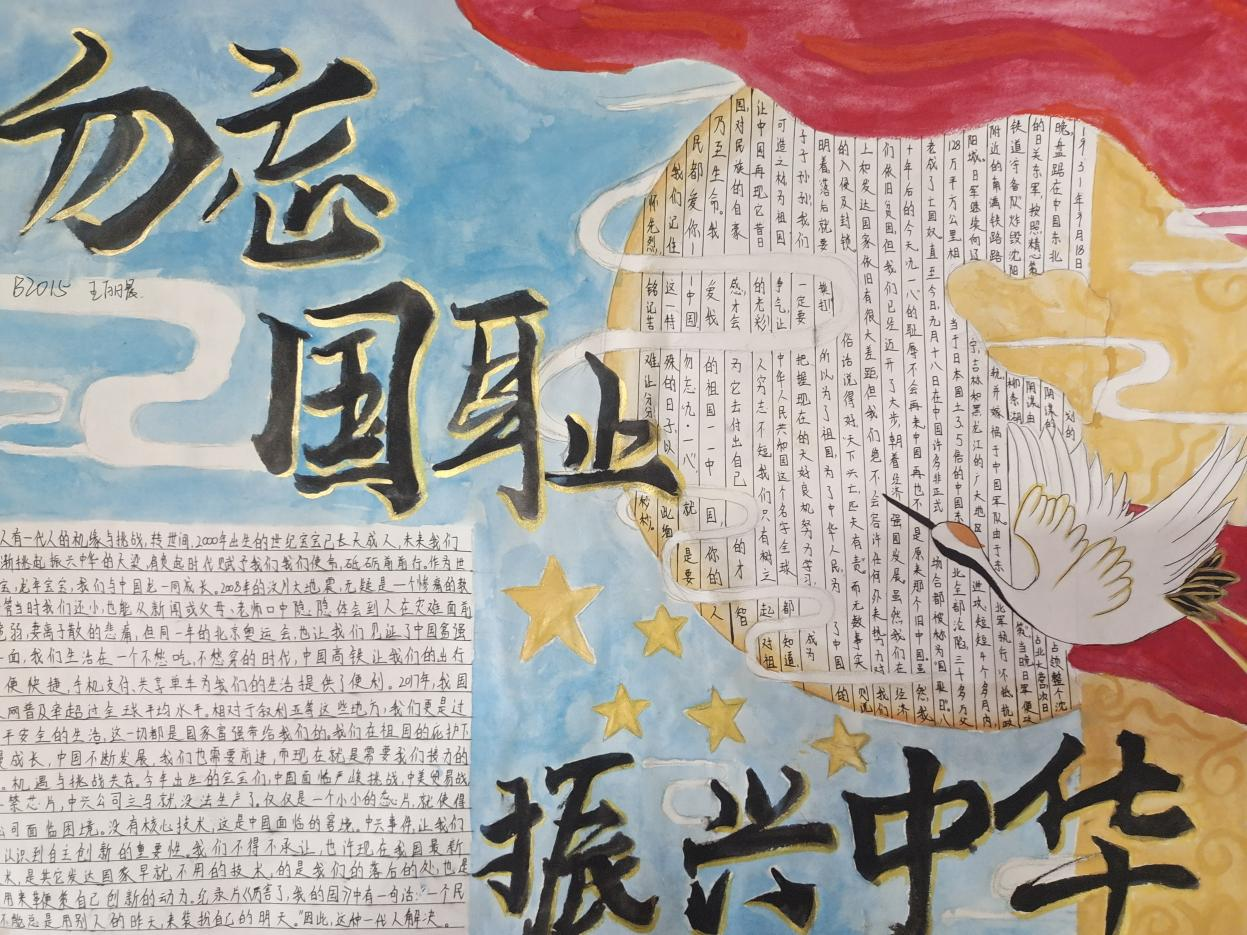 勿忘
国耻
B2015 王丽晨
人有一代人的机缘与挑战,转世间,2000年出生的世纪宝宝已长大成人,未来我们
渐挑起振兴中华的大梁,肩负起时代赋予我们我们使命,砥砺前前行。作为世
宝,龙年宝宝,我们与中国龙一同成长。2008年的汶川大地震,无疑是一个惨痛的教
管当时我们还小,也能从新闻或父母、老师口中隐隐体会到人在灾难面前
脆弱,妻离子散的悲痛,但同一年的北京奥运会,也让我们见证了中国富强
一面,我们生活在一个不愁吃,不愁穿的时代,中国高铁让我们的出行
便快捷,手机支付、共享单车为我们的生活提供了便利。2017年,我国
网普及率超过全球平均水平。相对于叙利亚等这些地方,我们更是过
平安全的生活,这一切都是国家富强带给我们的。我们在祖国的庇护下
成长,中国不断发展,我们也需要前进,而现在就是需要我们接力的
。机遇与挑战共存。今年出生的宝宝们,中国面临严峻挑战,中美贸易战
禁芯片,中兴公司三马就没法生产了。仅仅是一个小小的芯片,就使得
公司面临困境。没有核心技术,这是中国面临的窘境。中兴事件,让我们
认识到自主创新的重要性。我们不得不承认,也许现在我国最新
术,是其它发达国家早就不用的技术,的是我们的落后的处,也是
用来鞭策自己创新的动力。纪录片《厉害了,我的国》中有一句话:"一个民
不能总是用别人的昨天,来装扮自己的明天。"因此,这种一代人解决。
一九三一年9月18日
晚,盘踞在中国东北
的日关东军,按照精心策
划的
阴谋,由
铁道守备队炸毁沈阳
附近的南满铁路路
柳条湖
轨并嫁祸于中国军队。由于东
北军执行"不抵抗政
策",当晚日军便攻
占北大营,次日
占领整个沈
阳城。日军继续向辽
宁、吉林和黑龙江的广大地区
进攻,短短4个多月内,
128万平方公里相
当于日本国土3.5倍的中国东
北全部沦陷,三千多万父
老成了亡国奴直至今日九月十八日在中国许多非正式
场合都被称为"国耻日"。八
十年后的今天,九一八的耻辱不会再来中国再也不是原来那个旧中国虽然我
们依旧贫困但我们已经迈开了大步,朝着经济强国发展。虽然我们在经济
上和发达国家依旧有很大差距但我们绝不会容许任何外来势力对我们
的入侵及封锁
俗话说得好,天下兴亡匹夫有责,而无数事实则说
明着落后就要
挨打
的以为了祖国,为了中华人民,为了中国的
子子孙孙,我们
一定要
把握现在的大好良机努力学习,成为
可造之材为祖国
争气,让
中华人民共和国这个名字全球都知道,
让中国再现它昔日
的光彩
人穷志不短我们只有树立起对祖
国,对民族的自豪
感,才会
为它去付出自己的才智
乃至生命。我
爱我
的祖国——中国,你的人
民都爱你,
中国
勿忘九·一八,就是要
我们记住
这一特
殊的日子,以此勉
怀先烈
铭记苦
难,让
振兴中华